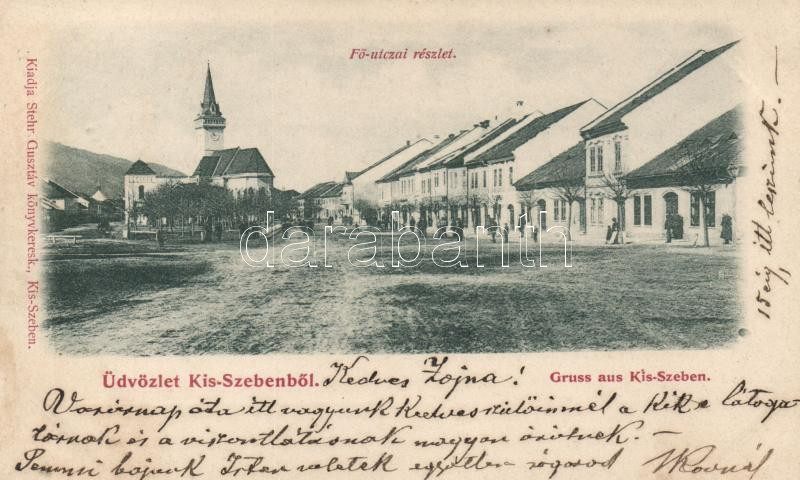 Fő-utczai részlet.
Kiadja Stehr Gusztáv könyvkeresk., Kis-Szeben.
darabanth
Üdvözlet Kis-Szebenből. Kedves Zojna!
Gruss aus Kis-Szeben.
Vasárnap óta itt vagyunk Kedves szülőinmél a Kik e látoga
tásnak és a viszontlátásnak nagyon örülnek. —
Semmi bajunk Isten veletek együtten
15éig itt leszünk. —